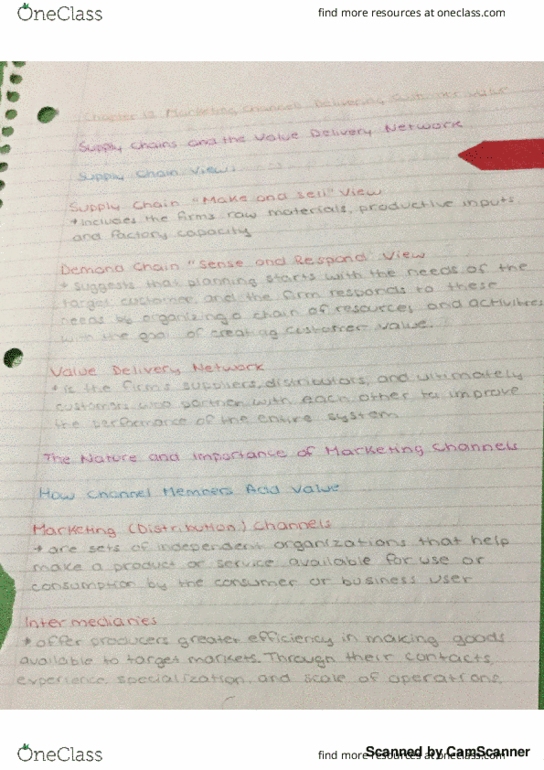 OneClass
find more resources at oneclass.com
Chapter 12 Marketing Channels Delivering Customer Value
Supply Chains and the Value Delivery Network
Supply Chain View:
Supply Chain "Make and sell" View
*includes the firms raw materials, productive inputs
and factory capacity
Demand Chain "Sense and Respond" View
* suggests that planning starts with the needs of the
target customer, and the firm responds to these
needs by organizing a chain of resources and activities
with the goal of creating customer value.
Value Delivery Network
* is the firms suppliers, distributors, and ultimately
customers who partner with each other to improve
the performance of the entire system
The Nature and importance of Marketing Channels
How Channel Members Add Value
Marketing (Distribution) Channels
* are sets of independent organizations that help
make a product or service available for use or
consumption by the consumer or business user
Intermediaries
* offer producers greater efficiency in making goods
available to target markets. Through their contacts,
experience, specialization, and scale of operations,
OneClass
find more resources at oneclass.com
Scanned by CamScanner